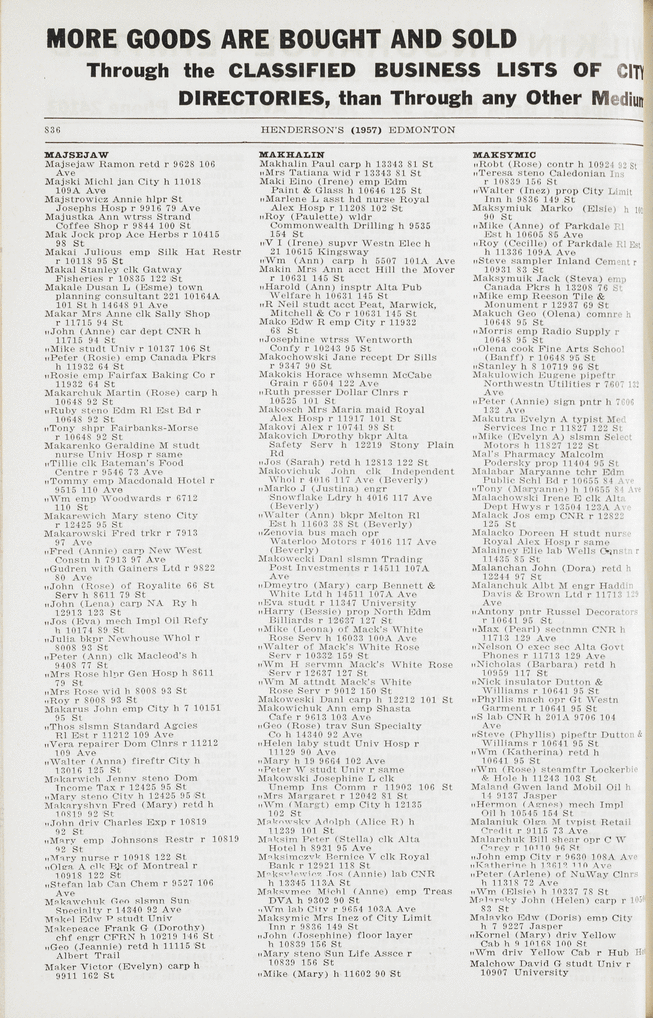 MORE GOODS ARE BOUGHT AND SOLD
Through the CLASSIFIED BUSINESS LISTS OF CITY
DIRECTORIES, than Through any Other Medium
836
HENDERSON'S (1957) EDMONTON
MAJSEJAW
Majsejaw Ramon retd r 9628 106
Ave
Majski Michl jan City h 11018
109A Ave
Majstrowicz Annie hlpr St
Josephs Hosp r 9916 79 Ave
Majustka Ann wtrss Strand
Coffee Shop r 9844 100 St
Mak Jock prop Ace Herbs r 10415
98 St
Makai Julious emp Silk Hat Restr
r 10118 95 St
Makal Stanley clk Gatway
Fisheries r 10835 122 St
Makale Dusan L (Esme) town
planning consultant 221 10164A
101 St h 14648 91 Ave
Makar Mrs Anne clk Sally Shop
r 11715 94 St
„John (Anne) car dept CNR h
11715 94 St
„Mike studt Univ r 10137 106 St
„Peter (Rosie) emp Canada Pkrs
h 11932 64 St
„Rosie emp Fairfax Baking Co r
11932 64 St
Makarchuk Martin (Rose) carp h
10648 92 St
„Ruby steno Edm Rl Est Bd r
10648 92 St
„Tony shpr Fairbanks-Morse
r 10648 92 St
Makarenko Geraldine M studt
nurse Univ Hosp r same
„Tillie clk Bateman's Food
Centre r 9546 73 Ave
„Tommy emp Macdonald Hotel r
9515 110 Ave
„Wm emp Woodwards r 6712
110 St
Makarewich Mary steno City
r 12425 95 St
Makarowski Fred trkr r 7913
97 Ave
„Fred (Annie) carp New West
Constn h 7913 97 Ave
„Gudren with Gainers Ltd r 9822
80 Ave
„John (Rose) of Royalite 66 St
Serv h 8611 79 St
„John (Lena) carp NA Ry h
12913 123 St
„Jos (Eva) mech Impl Oil Refy
h 10174 89 St
„Julia bkpr Newhouse Whol r
8008 93 St
„Peter (Ann) clk Macleod's h
9408 77 St
„Mrs Rose hlpr Gen Hosp h 8611
79 St
„Mrs Rose wid h 8008 93 St
„Roy r 8008 93 St
Makarus John emp City h 7 10151
95 St
„Thos slsmn Standard Agcies
Rl Est r 11212 109 Ave
„Vera repairer Dom Clnrs r 11212
109 Ave
„Walter (Anna) fireftr City h
13016 125 St
Makarwich Jenny steno Dom
Income Tax r 12425 95 St
„Mary steno City h 12425 95 St
Makaryshvn Fred (Mary) retd h
10819 92 St
„John driv Charles Exp r 10819
92 St
„Mary emp Johnsons Restr r 10819
92 St
„Mary nurse r 10918 122 St
„Olga A clk Bk of Montreal r
10918 122 St
„Stefan lab Can Chem r 9527 106
Ave
Makawchuk Geo slsmn Sun
Specialty r 14340 92 Ave
Makel Edw P studt Univ
Makepeace Frank G (Dorothy)
chf engr CFRN h 10219 146 St
„Geo (Jeannie) retd h 11115 St
Albert Trail
Maker Victor (Evelyn) carp h
9911 162 St
MAKHALIN
Makhalin Paul carp h 13343 81 St
„Mrs Tatiana wid r 13343 81 St
Maki Eino (Irene) emp Edm
Paint & Glass h 10646 125 St
„Marlene L asst hd nurse Royal
Alex Hosp r 11208 102 St
„Roy (Paulette) wldr
Commonwealth Drilling h 9535
154 St
„V I (Irene) supvr Westn Elec h
21 10615 Kingsway
„Wm (Ann) carp h 5507 101A Ave
Makin Mrs Ann acct Hill the Mover
r 10631 145 St
„Harold (Ann) insptr Alta Pub
Welfare h 10631 145 St
„R Neil studt acct Peat, Marwick,
Mitchell & Co r 10631 145 St
Mako Edw R emp City r 11932
68 St
„Josephine wtrss Wentworth
Confy r 10243 95 St
Makochowski Jane recept Dr Sills
r 9347 90 St
Makokis Horace whsemn McCabe
Grain r 6504 122 Ave
„Ruth presser Dollar Clnrs r
10525 101 St
Makosch Mrs Maria maid Royal
Alex Hosp r 11917 101 St
Makovi Alex r 10741 98 St
Makovich Dorothy bkpr Alta
Safety Serv h 12219 Stony Plain
Rd
„Jos (Sarah) retd h 12813 122 St
Makovichuk John clk Independent
Whol r 4016 117 Ave (Beverly)
„Marko J (Justina) engr
Snowflake Ldry h 4016 117 Ave
(Beverly)
„Walter (Ann) bkpr Melton Rl
Est h 11603 38 St (Beverly)
„Zenovia bus mach opr
Waterloo Motors r 4016 117 Ave
(Beverly)
Makowecki Danl slsmn Trading
Post Investments r 14511 107A
Ave
„Dmeytro (Mary) carp Bennett &
White Ltd h 14511 107A Ave
„Eva studt r 11347 University
„Harry (Bessie) prop North Edm
Billiards r 12637 127 St
„Mike (Leona) of Mack's White
Rose Serv h 16033 100A Ave
„Walter of Mack's White Rose
Serv r 10332 159 St
„Wm H servmn Mack's White Rose
Serv r 12637 127 St
„Wm M attndt Mack's White
Rose Serv r 9012 150 St
Makoweski Danl carp h 12212 101 St
Makowichuk Ann emp Shasta
Cafe r 9613 103 Ave
„Geo (Rose) trav Sun Specialty
Co h 14340 92 Ave
„Helen laby studt Univ Hosp r
11129 90 Ave
„Mary h 19 9664 102 Ave
„Peter W studt Univ r same
Makowski Josephine L clk
Unemp Ins Comm r 11903 106 St
„Mrs Margaret r 12042 81 St
„Wm (Margt) emp City h 12135
102 St
Makowsky Adolph (Alice R) h
11239 101 St
Maksim Peter (Stella) clk Alta
Hotel h 8931 95 Ave
Maksimczyk Bernice V clk Royal
Bank r 12921 118 St
Maksylewicz Jos (Annie) lab CNR
h 13345 113A St
Maksymec Michl (Anne) emp Treas
DVA h 9302 90 St
„Wm lab City r 9654 103A Ave
Maksymic Mrs Inez of City Limit
Inn r 9836 149 St
„John (Josephine) floor layer
h 10839 156 St
„Mary steno Sun Life Assce r
10839 156 St
„Mike (Mary) h 11602 90 St
MAKSYMIC
„Robt (Rose) contr h 10924 92 St
„Teresa steno Caledonian Ins
r 10839 156 St
„Walter (Inez) prop City Limit
Inn h 9836 149 St
Maksymiuk Marko (Elsie) h
90 St
„Mike (Anne) of Parkdale Rl
Est h 10605 85 Ave
„Roy (Cecille) of Parkdale Rl Est
h 11336 109A Ave
„Steve sampler Inland Cement r
10931 83 St
Maksymuik Jack (Steva) emp
Canada Pkrs h 13208 76 St
„Mike emp Reeson Tile &
Monument r 12937 69 St
Makuch Geo (Olena) comnre h
10648 95 St
„Morris emp Radio Supply r
10648 95 St
„Olena cook Fine Arts School
(Banff) r 10648 95 St
„Stanley h 8 10719 96 St
Makulowich Eugene pipeftr
Northwestn Utilities r 7607 132
Ave
„Peter (Annie) sign pntr h 7606
132 Ave
Makutra Evelyn A typist Med
Services Inc r 11827 122 St
„Mike (Evelyn A) slsmn Select
Motors h 11827 122 St
Mal's Pharmacy Malcolm
Podersky prop 11404 95 St
Malabar Maryanne tchr Edm
Public Schl Bd r 10655 84 Ave
„Tony (Maryanne) h 10655 84 Ave
Malachowski Irene B clk Alta
Dept Hwys r 13504 123A Ave
Malack Jos emp CNR r 12822
125 St
Malacko Doreen H studt nurse
Royal Alex Hosp r same
Malainey Elie lab Wells Constn r
11435 85 St
Malanchan John (Dora) retd h
12244 97 St
Malanchuk Albt M engr Haddin
Davis & Brown Ltd r 11713 129
Ave
„Antony pntr Russel Decorators
r 10641 95 St
„Max (Pearl) sectnmn CNR h
11713 129 Ave
„Nelson O exec sec Alta Govt
Phones r 11713 129 Ave
„Nicholas (Barbara) retd h
10959 117 St
„Nick insulator Dutton &
Williams r 10641 95 St
„Phyllis mach opr Gt Westn
Garment r 10641 95 St
„S lab CNR h 201A 9706 104
Ave
„Steve (Phyllis) pipeftr Dutton &
Williams r 10641 95 St
„Wm (Katherina) retd h
10641 95 St
„Wm (Rose) steamftr Lockerbie
& Hole h 11243 103 St
Maland Gwen land Mobil Oil h
14 9137 Jasper
„Hermon (Agnes) mech Impl
Oil h 10545 154 St
Malaniuk Olga M typist Retail
Credit r 9115 73 Ave
Malarchuk Bill shear opr C W
Carey r 10110 96 St
„John emp City r 9630 108A Ave
„Katherine h 13612 110 Ave
„Peter (Arlene) of NuWay Clnrs
h 11318 72 Ave
„Wm (Elsie) h 10337 78 St
Malarsky John (Helen) carp r
83 St
Malavko Edw (Doris) emp City
h 7 9227 Jasper
„Kornel (Mary) driv Yellow
Cab h 9 10168 100 St
„Wm driv Yellow Cab r Hub
Malchow David G studt Univ r
10907 University